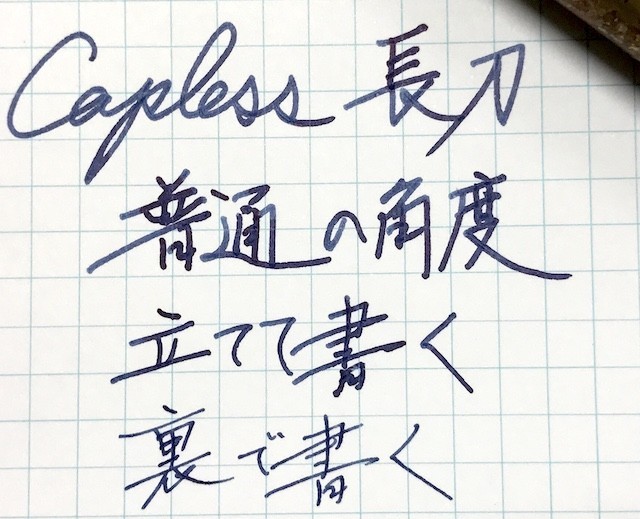 Capless 長刀
普通の角度
立てて書く
裏で書く